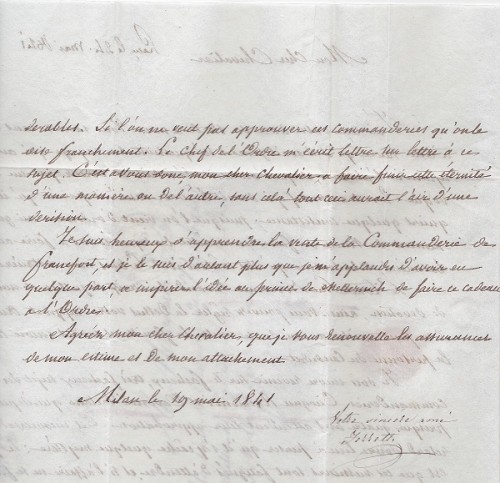 dérables. Si l'on ne veut pas approuver ces commanderies qu'on le
dise franchement. Le Chef de l'Ordre m'écrit lettre sur lettre à ce
sujet. C'est à vous donc, mon cher chevalier a faire finir cette éternité
d'une manière ou de l'autre, sans celà tout ceci aurait l'air d'une
derision.
Je suis heureux d'apprendre la vente de la Commanderie de
Francfort, et je le suis d'autant plus que je m'applaudis d'avoir en
quelque part, a inspirer l'idée au prince de Metternich de faire ce cadeau
a l'Ordre.
Agréez mon cher Chevalier, que je vous renouvelle les assurances
de mon estime et de mon attachement
Milan le 19 mai 1841
Votre sincère ami